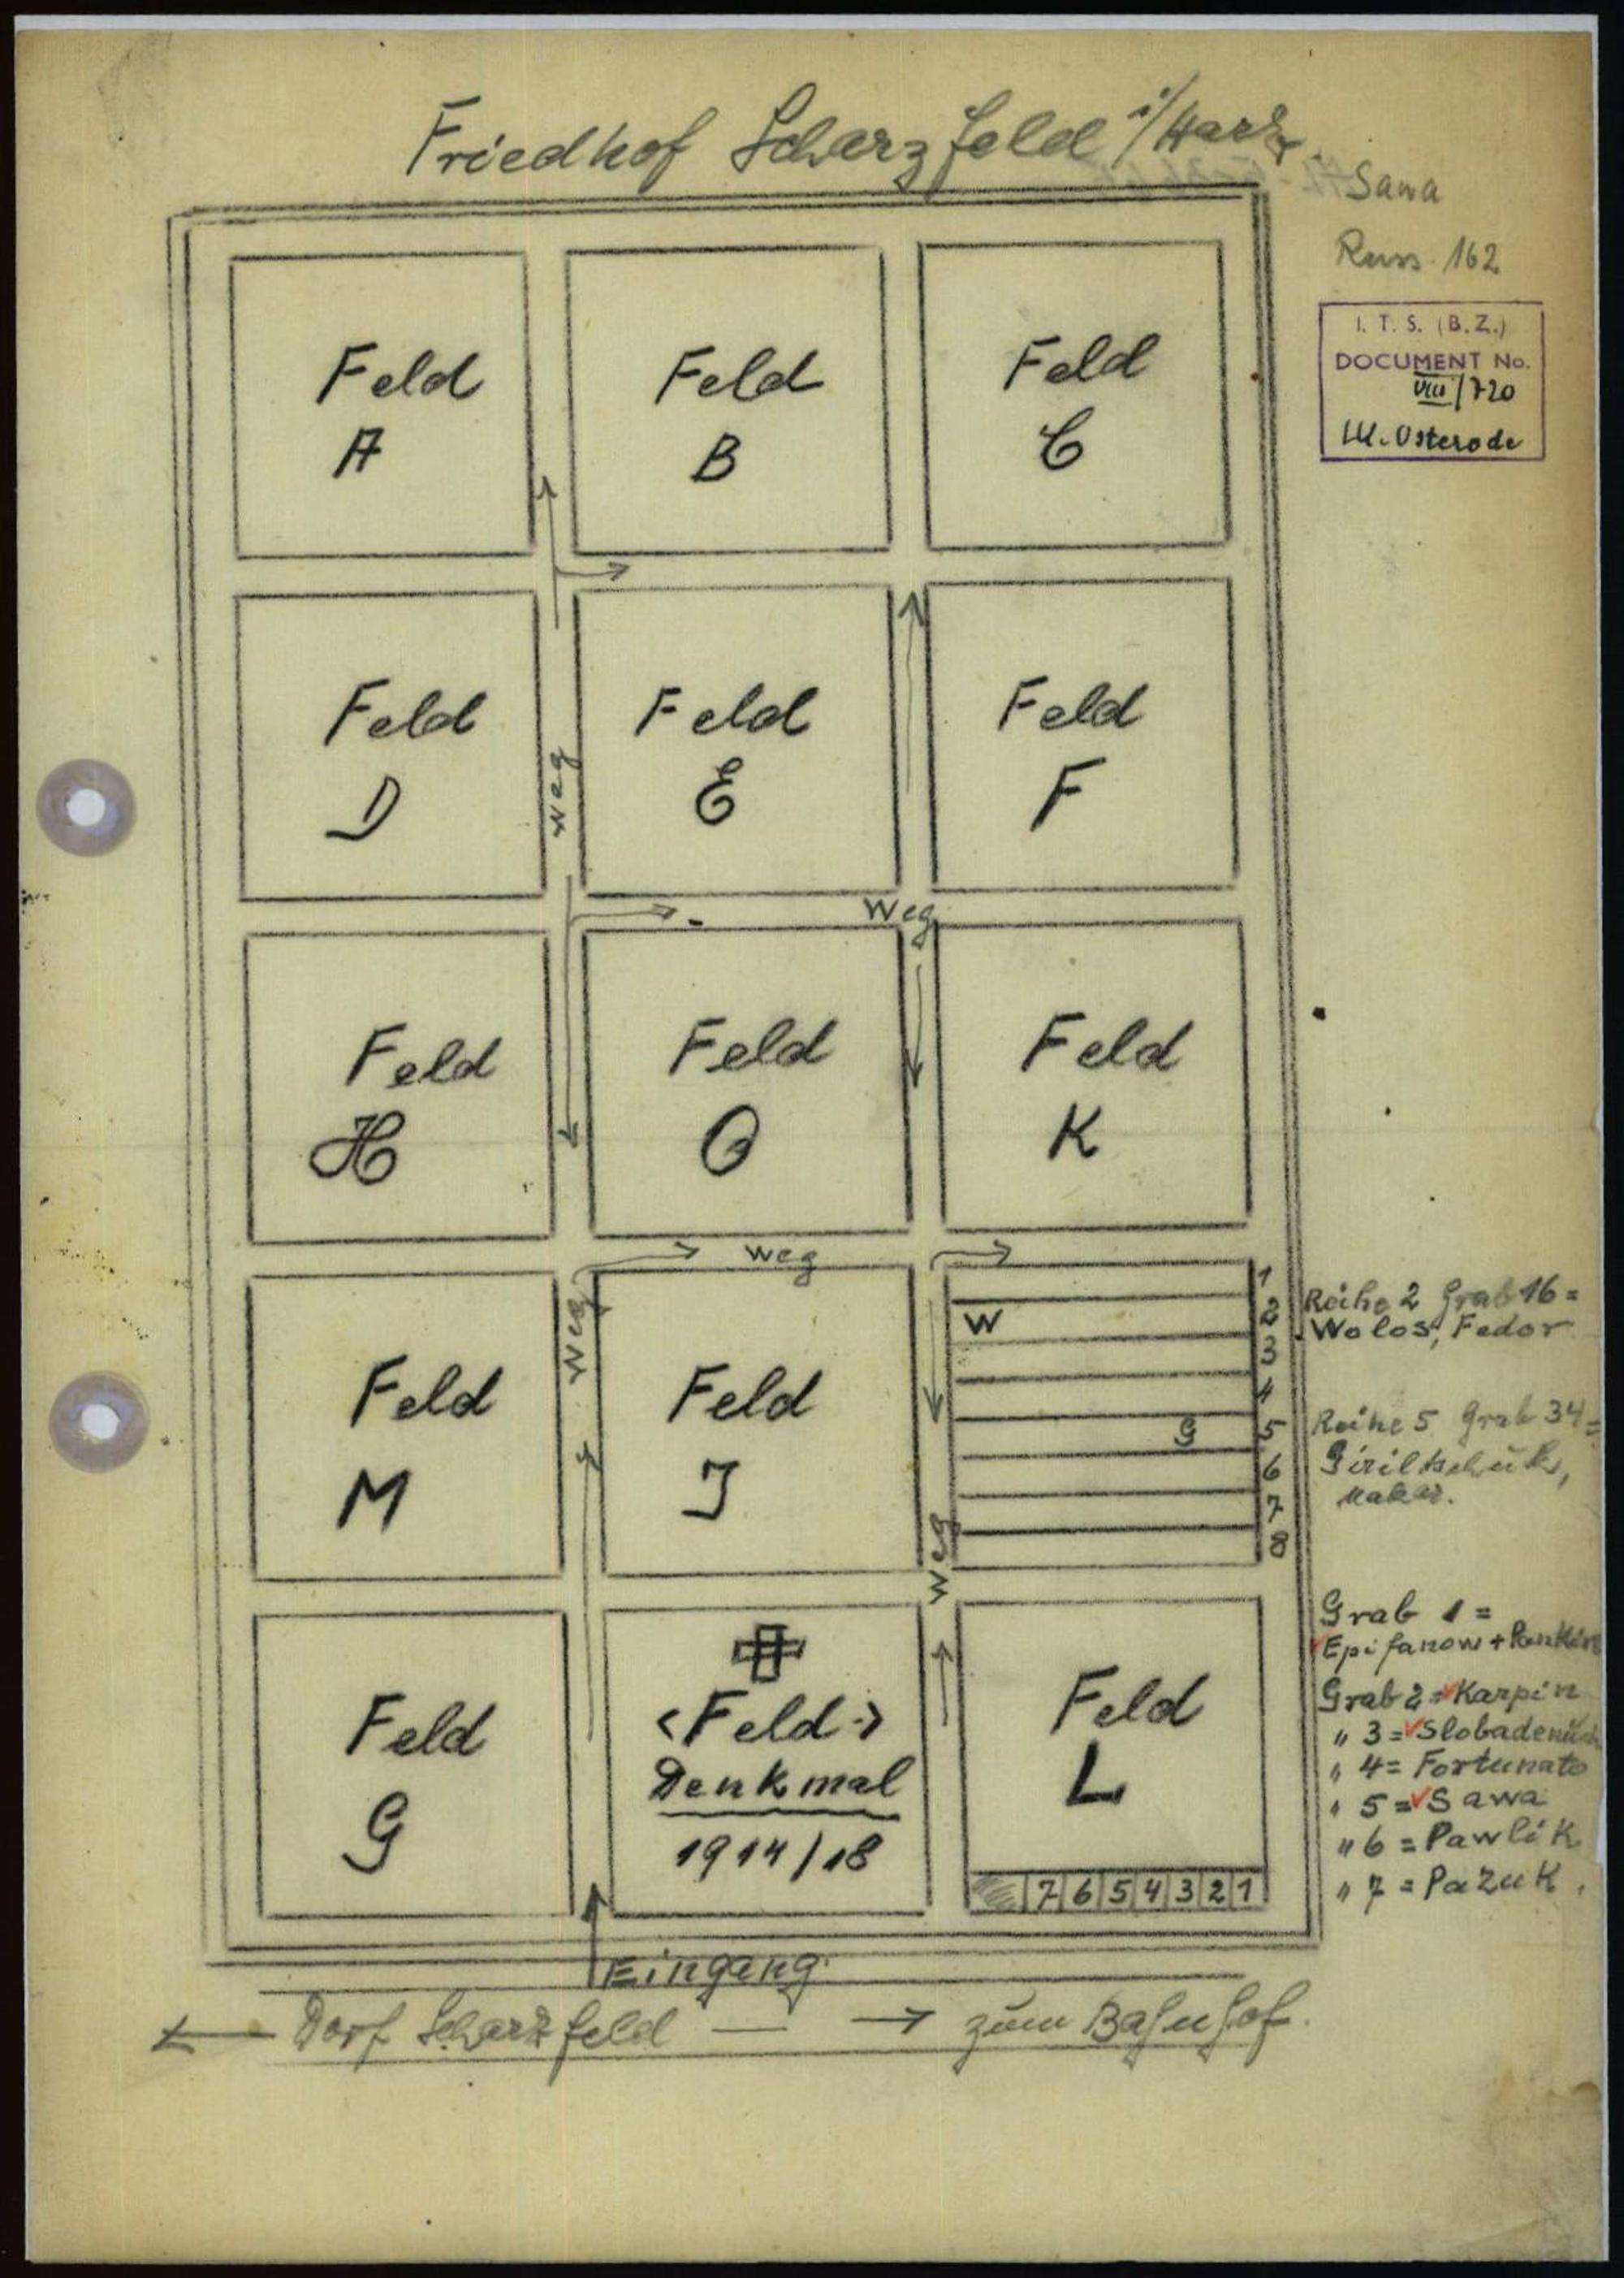 Friedhof Scharzfeld i/Harz.
Sawa
Russ. 162
I. T. S. (B. Z.)
DOCUMENT No.
VIII/720
LK. Osterode
Feld
A
Feld
B
Feld
C
Feld
D
Weg
Feld
E
Feld
F
Weg
Feld
H
Feld
O
Feld
K
Weg
Feld
M
Weg
Feld
J
Weg
W
G
1
2
3
4
5
6
7
8
Reihe 2 Grab 16 =
Wolos, Fedor
Reihe 5 Grab 34 =
Giriltschuk,
Makar.
Feld
G
<Feld>
Denkmal
1914/18
Feld
L
7 6 5 4 3 2 1
Grab 1 =
Epifanow +
Grab 2 = Karpin
" 3 =
" 4 = Fortunato
" 5 = Sawa
" 6 = Pawlik
" 7 = Pazuk.
Eingang.
← Dorf Scharzfeld — → zum Bahnhof.